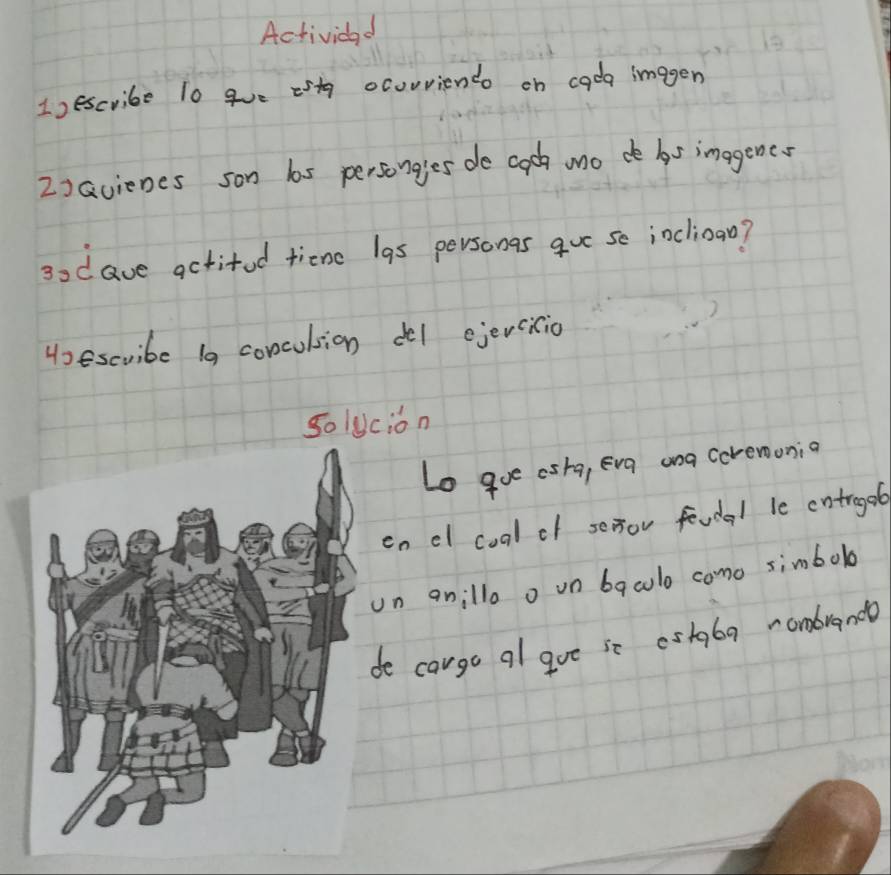 Actividad
1) escribe lo que esta ocurriendo en cada imagen
2) Quienes son los personajes de cada uno de los imagenes
3) ¿Que actitud tiene las personas que se inclinan?
4) escribe la conculsion del ejercicio
Solución
Lo que esta, Era una ceremonia
en el cual el señor feudal le entregab
un anillo o un baculo como simbolo
de cargo al que se estaba nombrando